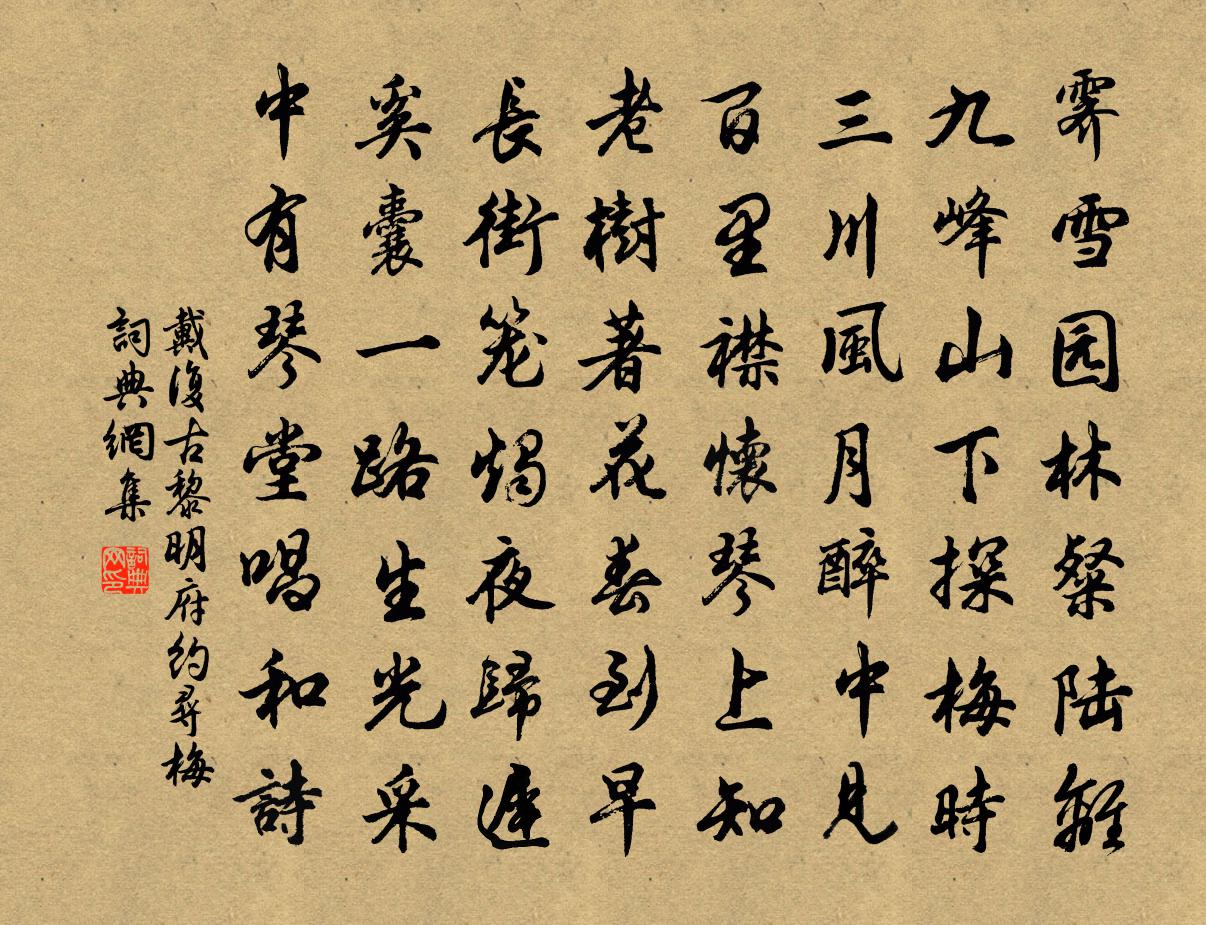 霁雪园林粲陆離
九峰山下探梅時
三川風月醉中見
百里襟懷琴上知
老樹著花春到早
長街笼燭夜歸遲
奚囊一路生光采
中有琴堂唱和詩
戴復古黎明府約尋梅
詞典網集
詞典网印